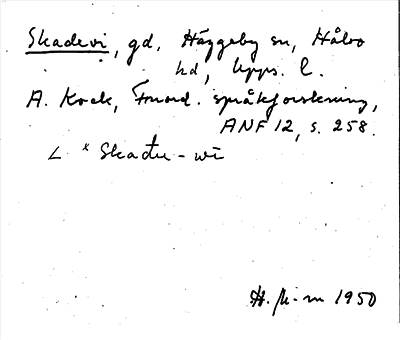 Skadevi, gd. Häggeby sn, Håbo
hd, Upps. l.
A. Kock, Fnord. språkforskning,
ANF 12, s. 258.
< * Skaðu - wī
H. 1950